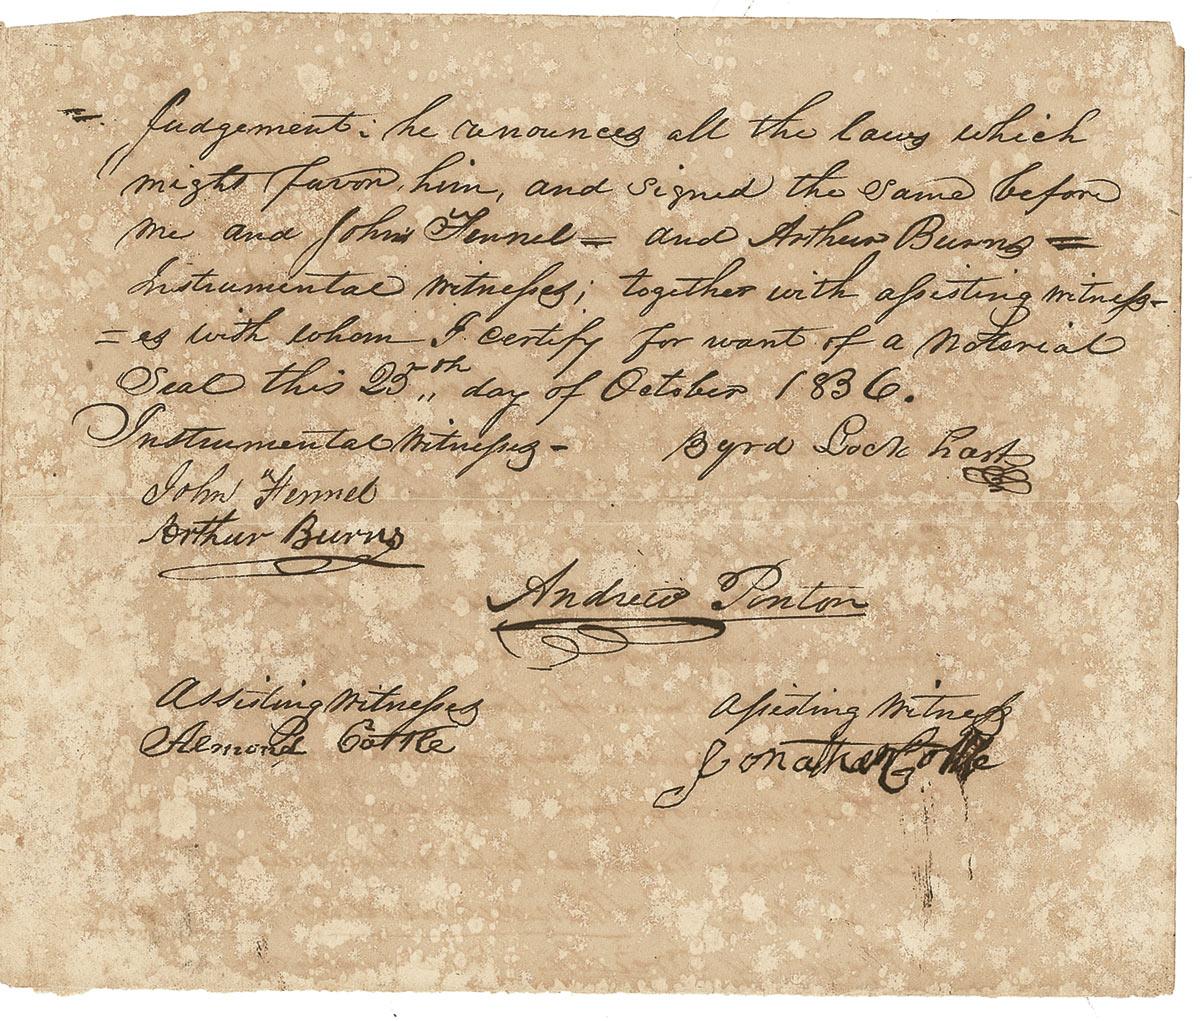 = Judgement: he renounces all the laws which
might favor him, and signed the same before
me and John Fennel = and Arthur Burns =
Instrumental Witnesses; together with assisting witness-
= es with whom I certify for want of a Noterial
Seal this 25th day of October 1836.
Instrumental Witnesses - Byrd Lockhart
John Fennel
Arthur Burns
Andrew Ponton
Assisting Witnesses Assisting Witness
Almond Cottle Jonathan Cottle